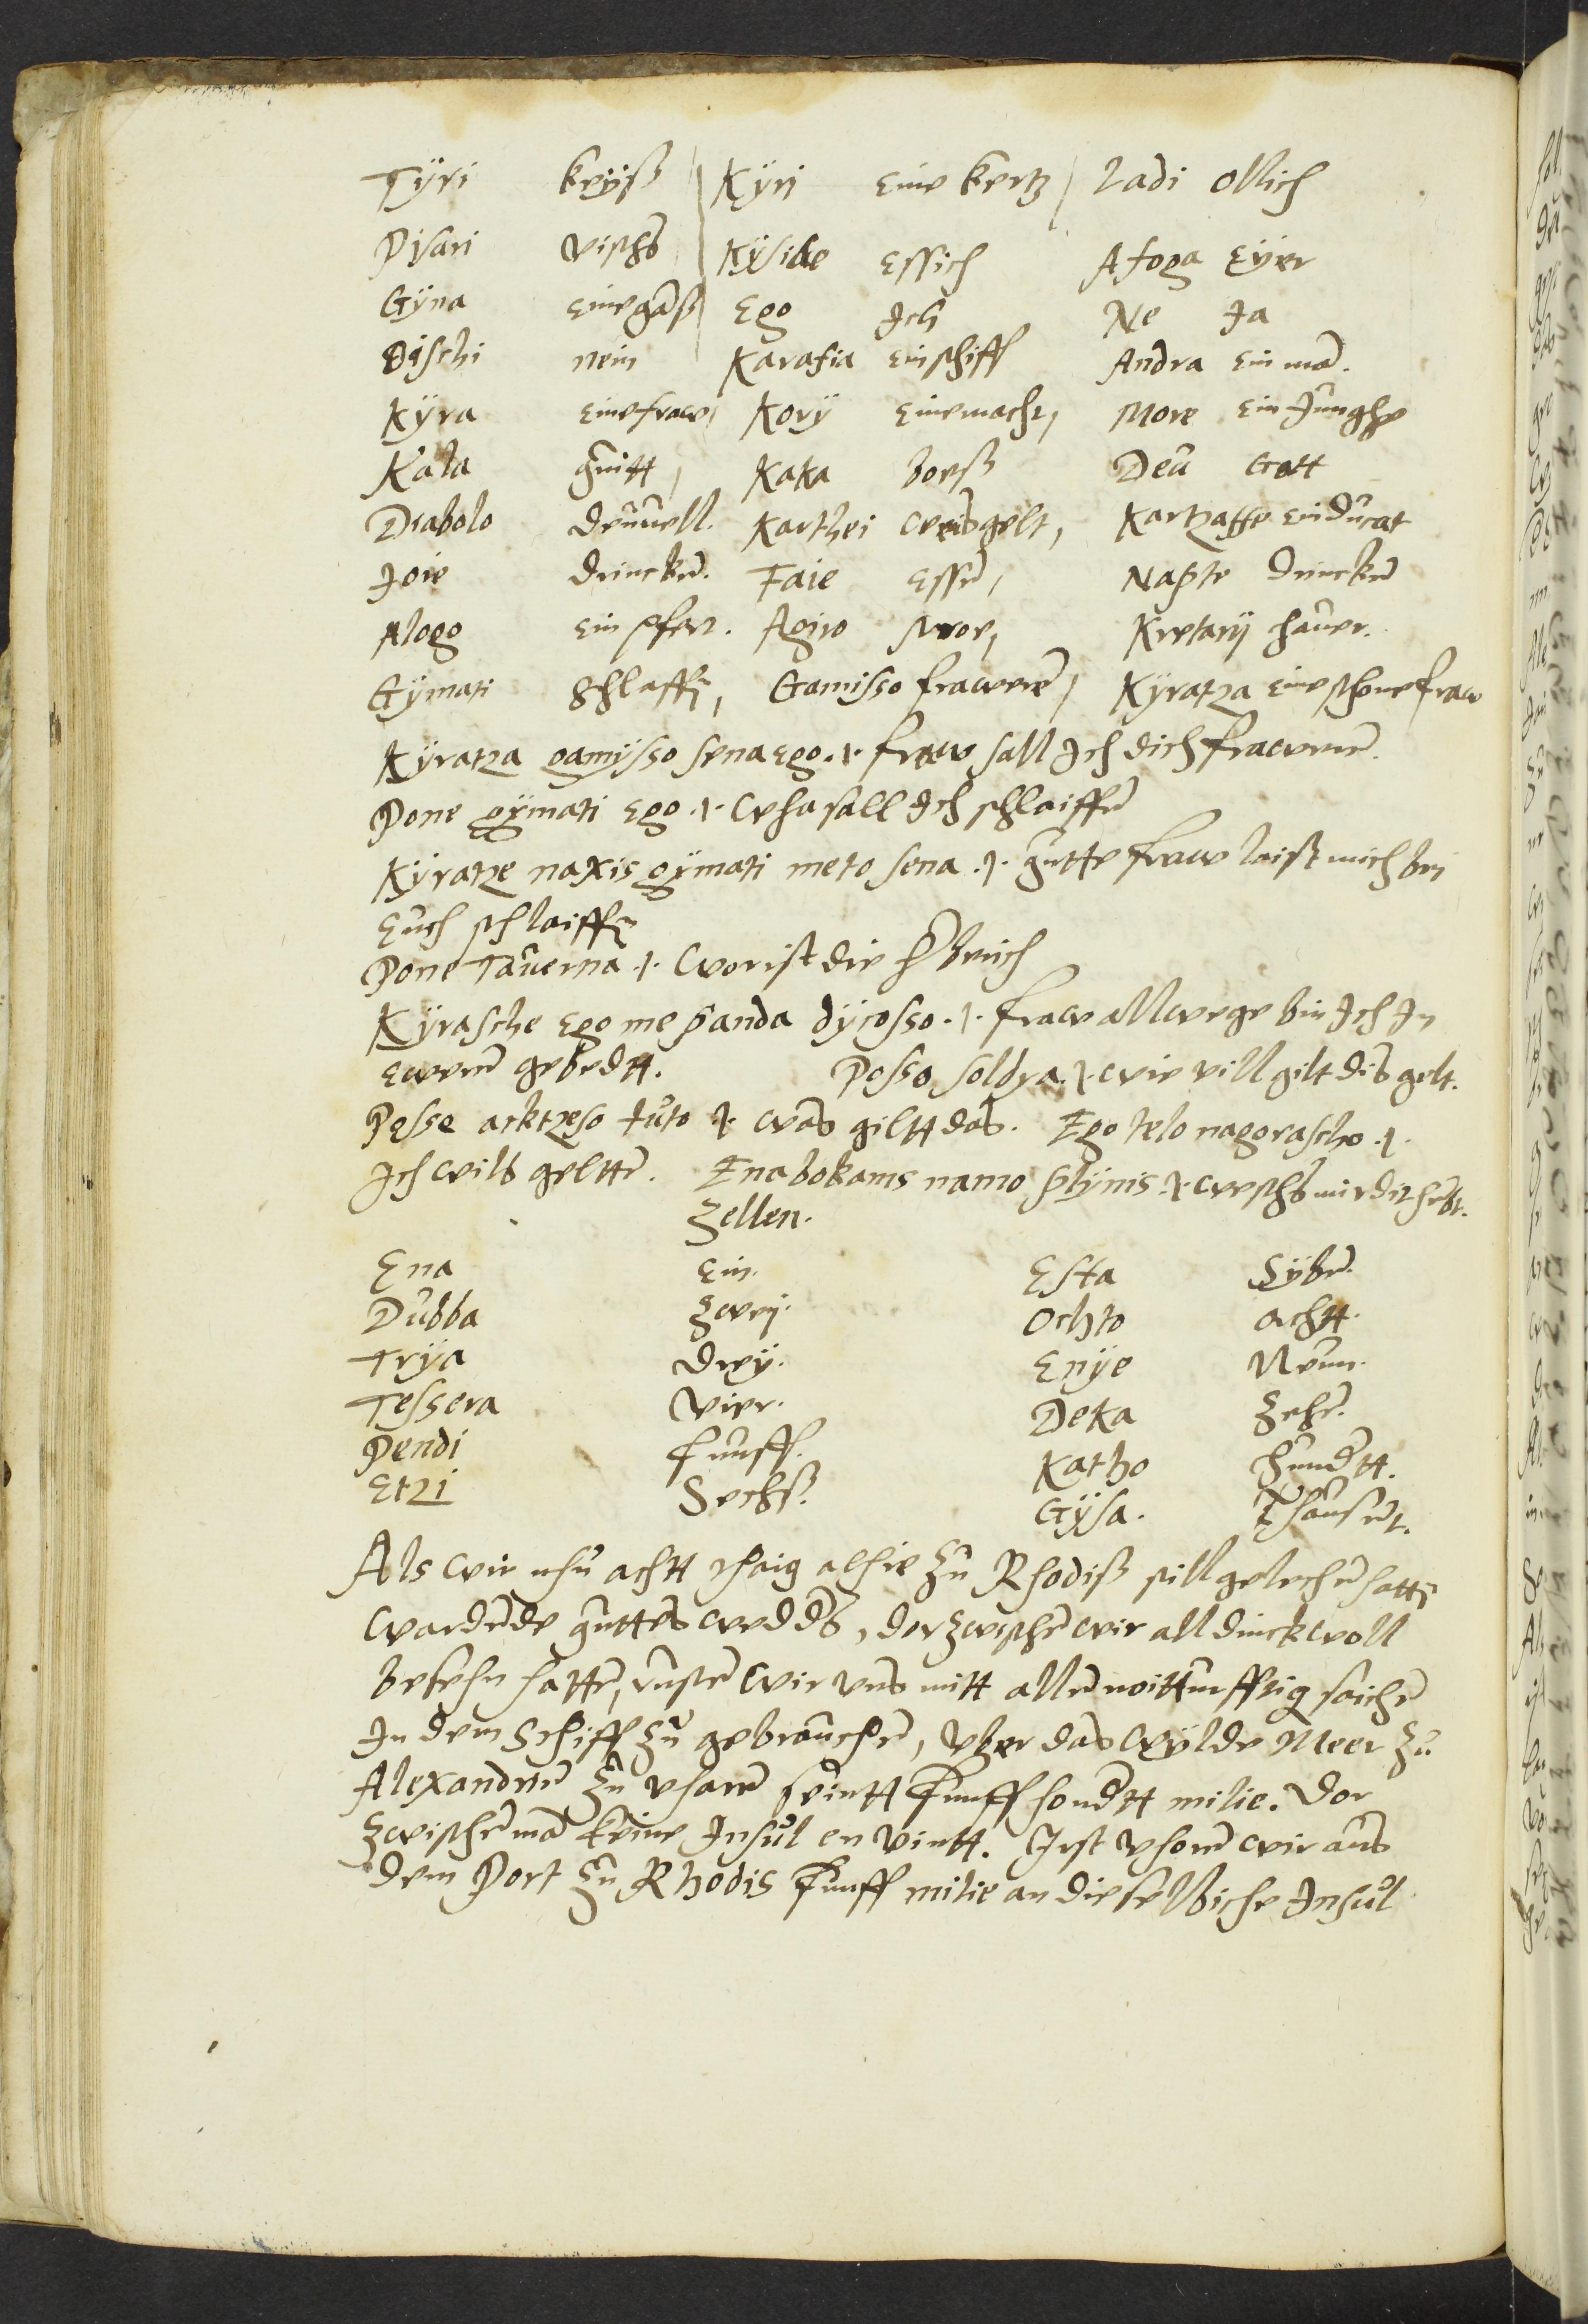 Tÿri keÿss Kÿri Eine kertz Ladi ollich
Pisari vischs Kÿside Essich Afoga Eÿer
Gÿna Eine ganss Ego Jch Ne Ja
Oÿschi nein Karafia Ein schiff Andra Ein man.
Kÿra Eine fraw, Korÿ Eine macht, More Ein Junghe
Kala guitt, Kaka boess Deu Gott
Diabolo deuuell. Karthei weisgelt, Kartzaffe Ein ducat
Joie drincken. Faie Essen, Napte drincken
Alogo Ein pfert. Agiro stroe, Kretarÿ hauer.
Gÿmati Schlaffen, Gamisso frawen, Kÿratza Eine schone fraw
Kÿratza gamÿsso sena Ego .j. fraw sall Jch dich frawen.
Pone gÿmati Ego .j. wha sall Jch schlaiffen
Kÿratze naxis gÿmati meto sena .j. gutte fraw laist mich bei
Euch schlaiffen
Pone Tauerna .j. wor ist die
Kÿrasche Ego me panda dÿcosso .j. fraw allwege bin Jch Jn
Ewerm gebedtt. Posso soldya .j. wie vill gilt dis gelt.
Pesse arktzeso tuto .j. was giltt das. Ego telo nagorascho .j.
Jch wils geltten. Ena bokams namo plÿnis .j. weschs mir dit hembt.
Zellen.
Ena Ein. Esta Sÿben.
Dubba Zweÿ. Ochto achtt.
Trÿa dreÿ. Enÿe Neun.
Tessera Vier. Deka Zehen.
Pendi funff. Katho hundertt.
Etzi Sechss. Gÿsa. Thausent.
Als wir nhu achtt thaig alhie zu Rhodiss still gelechen hatten
wardende guttes wedders, dor zwischen wir all dinck woll
besehn hatten, rusten wir vns mitt allen noitturfftig saichen
Jn dem Schiff zu gebrauchen, vber das wÿlde Meer zu
Alexandrien zu vharen seintt funff hondertt milie. Dor
zwischen man keine Jnsul en vintt. Jrst vhoren wir aus
dem Port zu Rhodis funff milie an die selbiche Jnsul